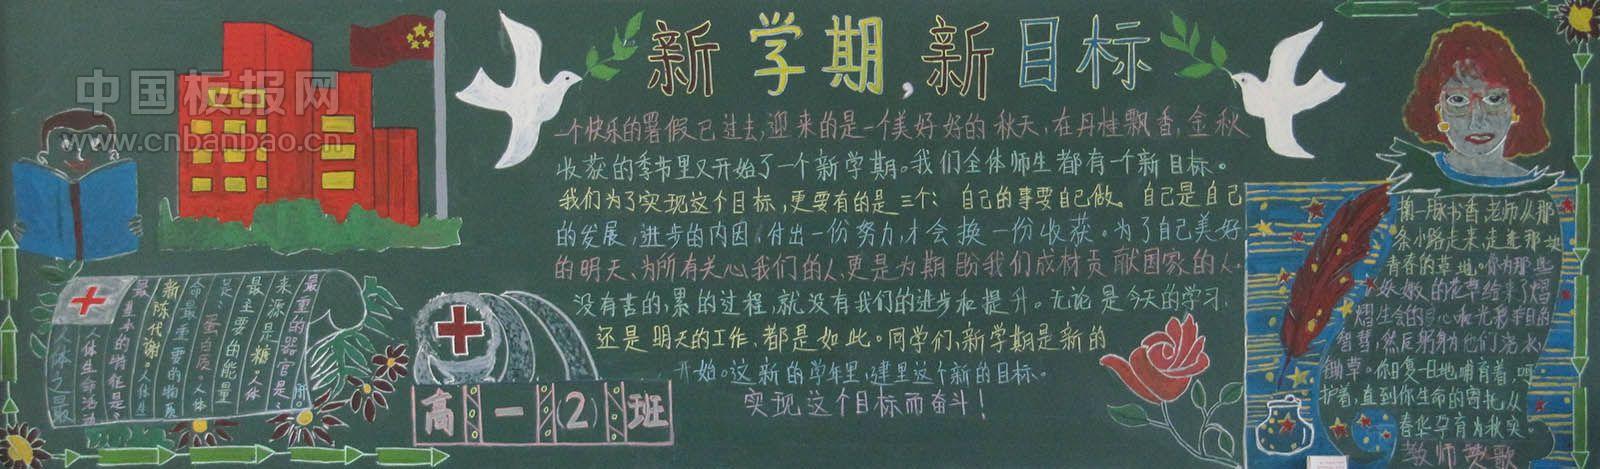 新学期,新目标
中国板报网
www.cnbanbao.cn
一个快乐的署假已过去,迎来的是一个美好好的秋天,在丹桂飘香,金秋
收获的季节里又开始了一个新学期。我们全体师生都有一个新目标。
我们为了实现这个目标,更要有的是三个:自己的事要自己做。自己是自己
的发展,进步的内因,付出一份努力,才会换一份收获。为了自己美好
的明天、为所有关心我们的人,更是为期盼我们成材贡献国家的人.
没有苦的,累的过程,就没有我们的进步和提升。无论是今天的学习,
还是明天的工作、都是如此。同学们,新学期是新的
开始。这新的学年里,建里这个新的目标。
实现这个目标而奋斗!
最重的器官是:
来源是:糖。人体
最主要的能量
是:蛋白质、人体
命最重要的物质
新陈代谢。人体生
最基本的特征是
人体生命活动
人体之最
高一(2)班
掬一脉书香,老师从那
条小路走来,走进那块
青春的草地。你为那些
娇嫩的花草结来了熠
熠生命的
智慧,然后躬身为他们浇水,
锄草。你日复一日地哺育着,呵
护着,直到你生命的寄托从
春华孕育为秋实。
教师赞歌